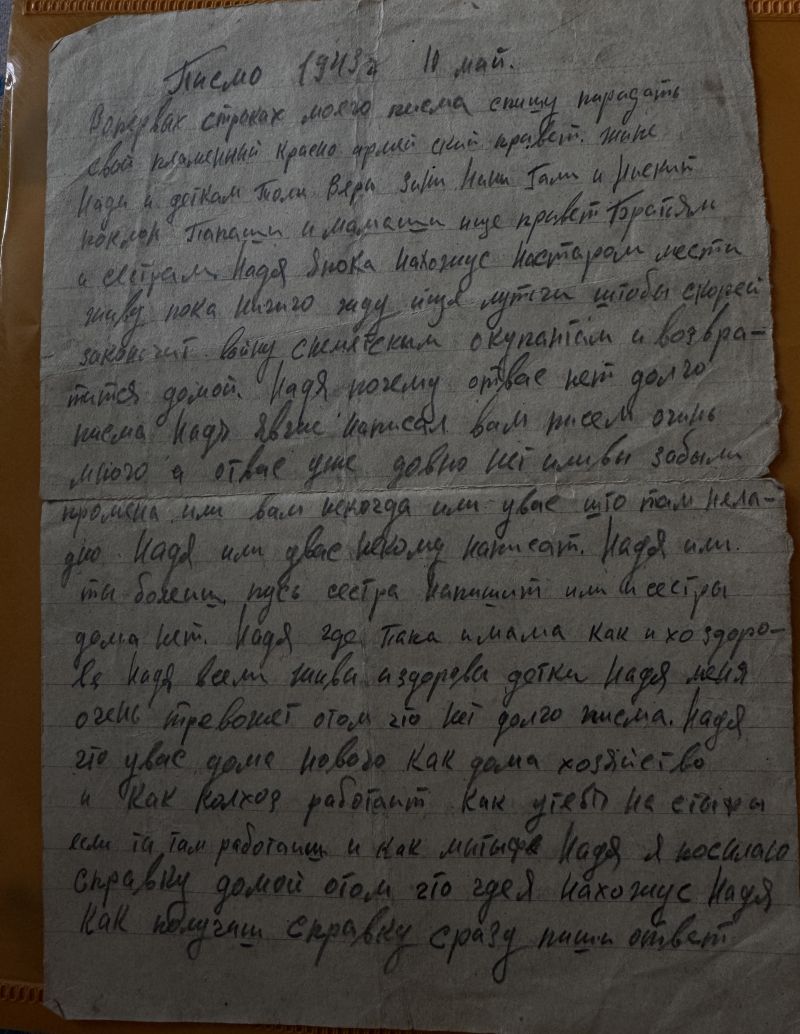 Писмо 1943 г 10 май.
Вопервых строках моего писма спишу парадать
свой пламенный красно армей ский правет. жине
Нади и деткам Толи Веры Зины Нины Гали и Ниский
поклон Папаши и мамаши ище правет Братям
и сестрам Надя япока нахожус настаром мести
живу пока ничиго жду штобы скорей
закончит войну снеметским окупантам и возвра-
тится домой. Надя почему отвас нет долго
писма Надь явчас написал вам писем очень
много а отвас уже довно нет иливы забыли
промена или вам некогда или увас што там нела-
дно Надя или увас некому написат. Надя или
ты болеиш пусь сестра напишит или и сестры
дома нет. Надя где папа имама как ихо здоро-
вя Надя всели живы издоровы детки Надя меня
очень тревожет отом что нет долго писма. Надя
что увас дома нового как дома хозяйство
и как колхоз работаит как утебы на
если ты там работаиш и как Надя я посилаю
справку домой отом что где я нахожус Надя
как получиш справку сразу пиши ответ